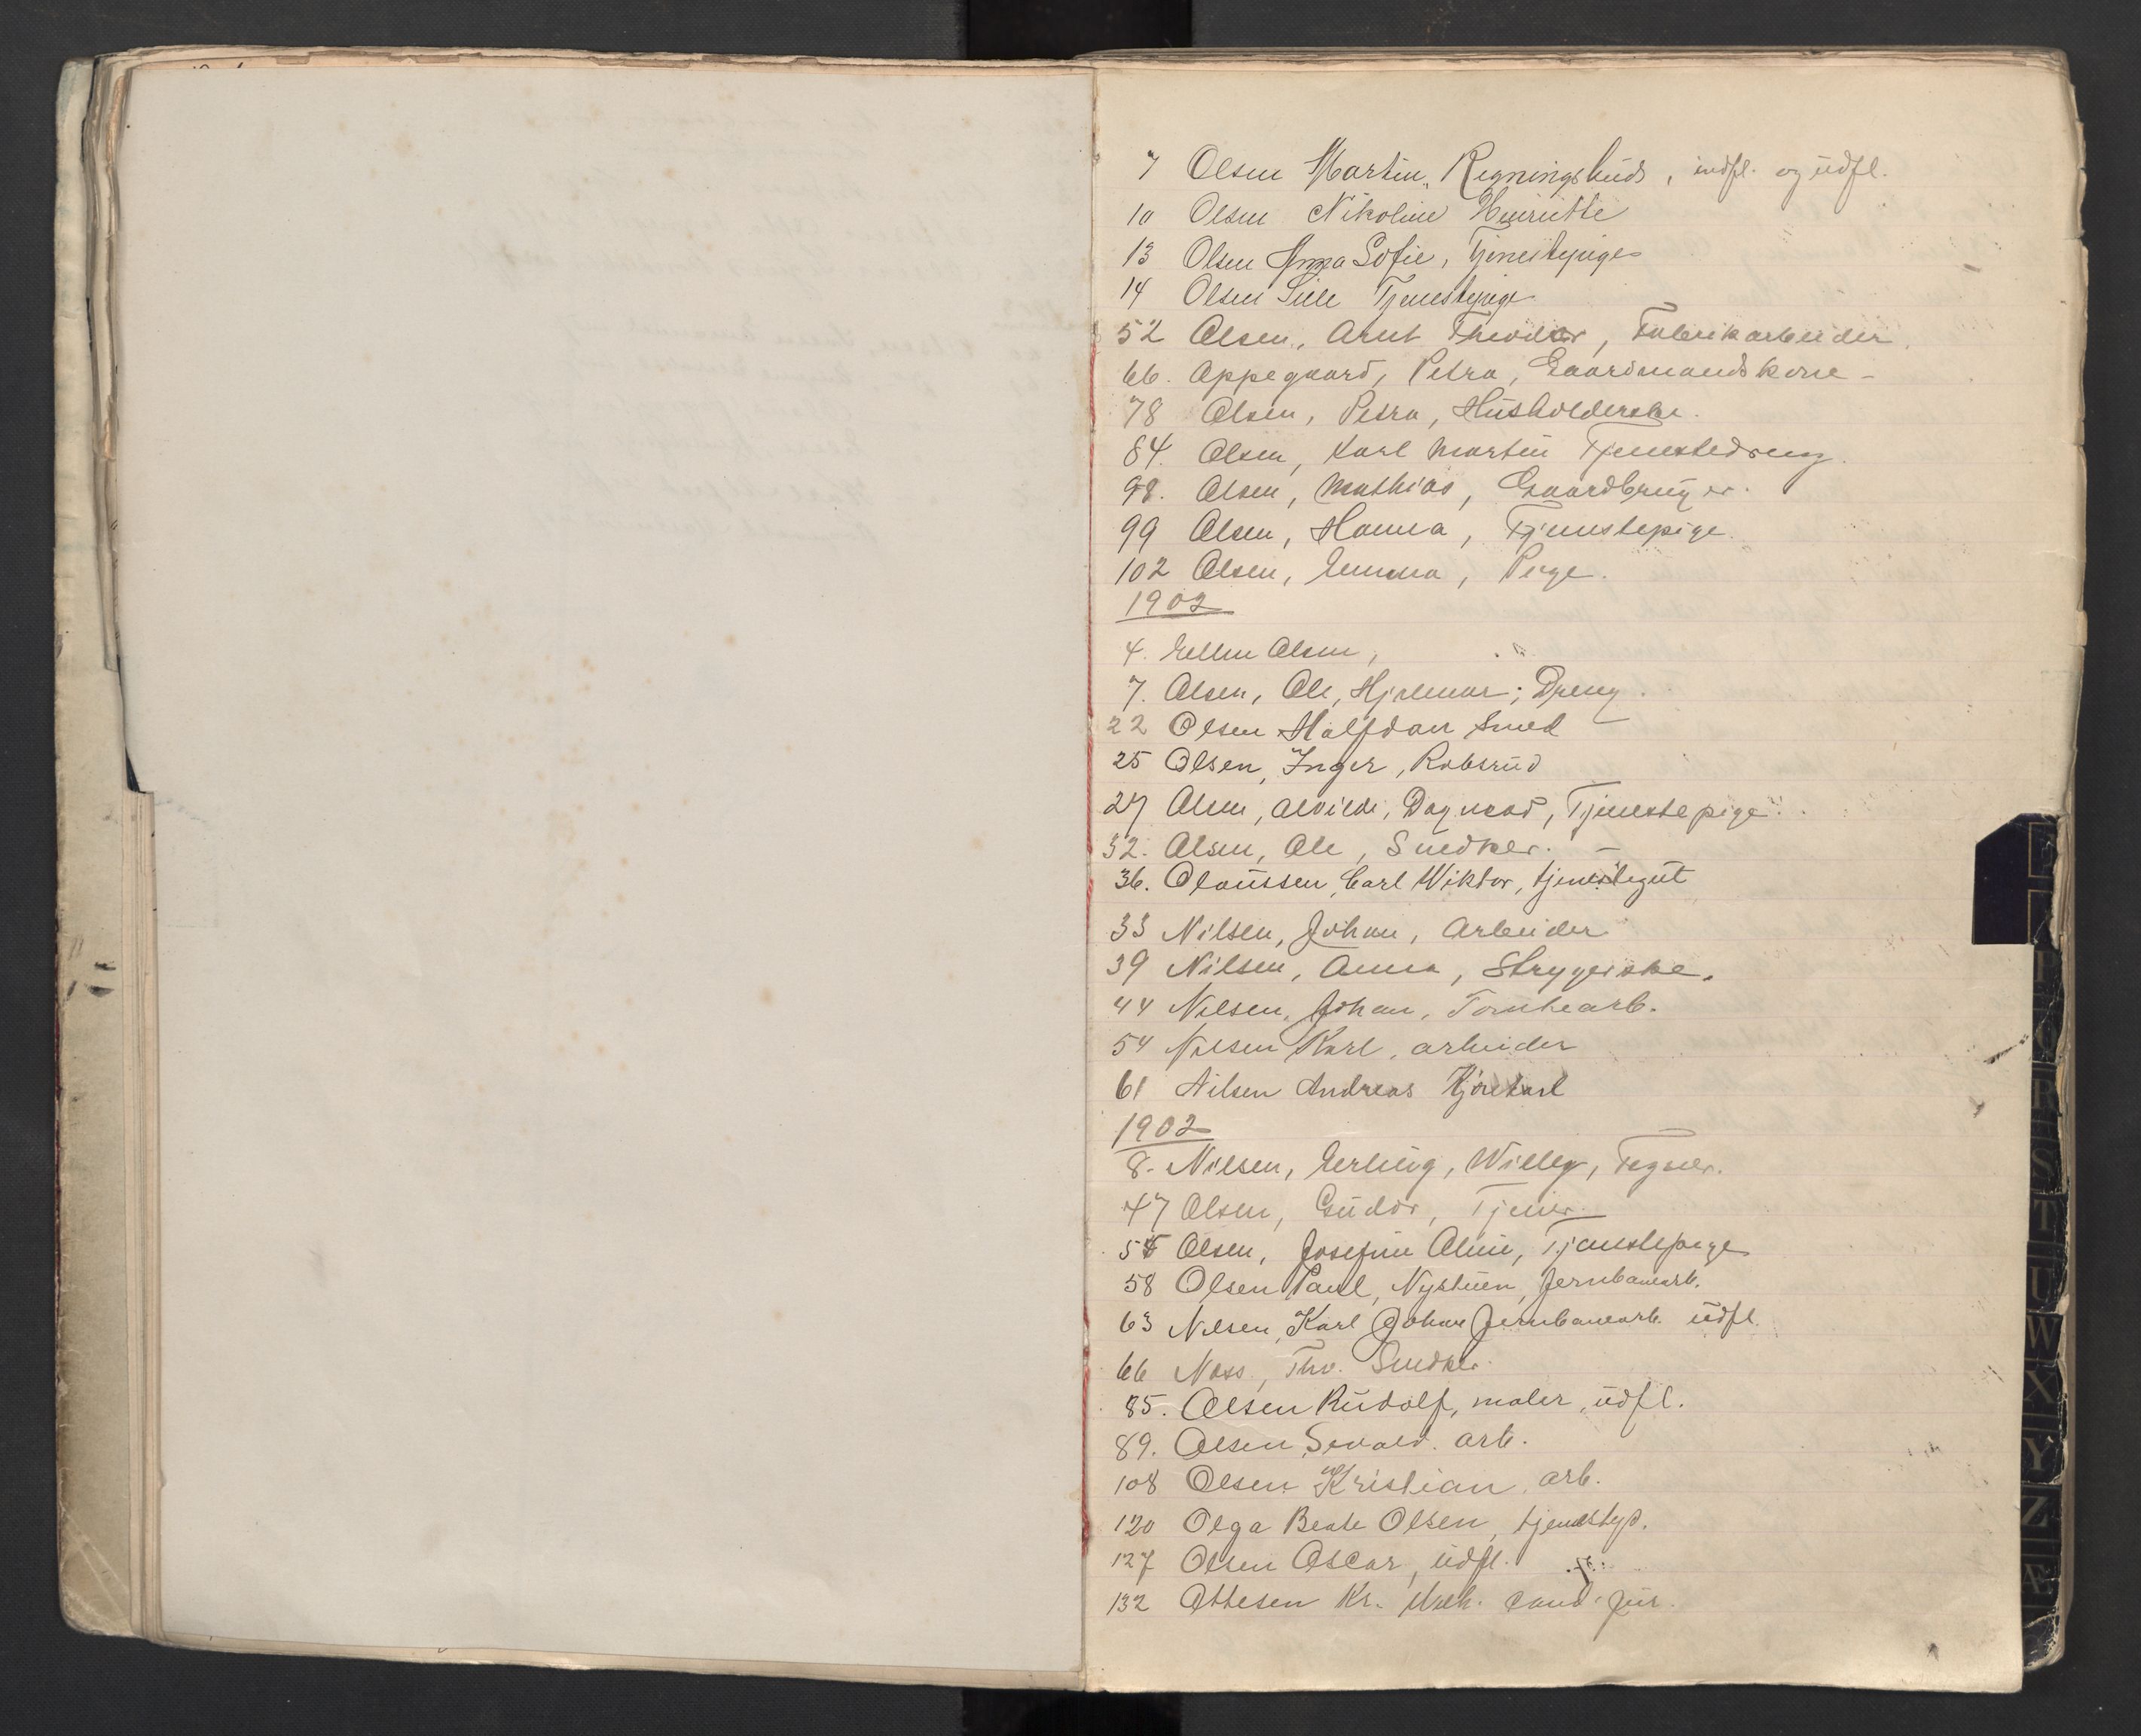 7 Olsen Martin, Regningsbud, indfl. og udfl.
10 Olsen Nikoline Henriette
13 Olsen Anna Sofie, Tjenestepige
14 Olsen Tjenestepige
52 Olsen, Arnt Theodor, Fabrikarbeider.
66. Oppegaard, Petra, Gaardmandskone -
78 Olsen, Petra, Husholderske.
84. Olsen, Karl Martin Tjenestedreng.
98. Olsen, Mathias, Gaardbruger.
99 Olsen, Hanna, Tjenestepige.
102 Olsen, Emma, Pige.
1902
4. Ellen Olsen,
7. Olsen, Ole, Hjalmar; Dreng.
22 Olsen Halfdan Smed
25 Olsen, Inger, Robsrud
27 Olsen, Alvilde, Dagmar, Tjenestepige.
32. Olsen, Ole, Snedker. -
36. Olaussen, Carl Wiktor, tjenestegut
33 Nilsen, Johan, Arbeider
39 Nilsen, Anna, Strygerske.
44 Nilsen, Johan, Tomtearb.
54 Nilsen Karl, arbeider
61 Nilsen Andreas Kjørekarl
1902
8. Nilsen, Erling, Willy, Tegner.
47 Olsen, Gudor, Tjener.
55 Olsen, Josefine Oline, Tjenestepige
58 Olsen Paul, Nystuen, Jernbanearb.
63 Nilsen, Karl Johan Jernbanearb. udfl.
66 Næss, Thv. Snedker.
85. Olsen Rudolf, maler, udfl.
89. Olsen, Sevald. arb.
108 Olsen Kristian, arb.
120 Olga Beate Olsen, tjenestep.
127 Olsen Oscar, udfl.
132 Ottesen Kr. cand. jur.
P
Q
R
S
T
U
W
X
Y
Z
Æ